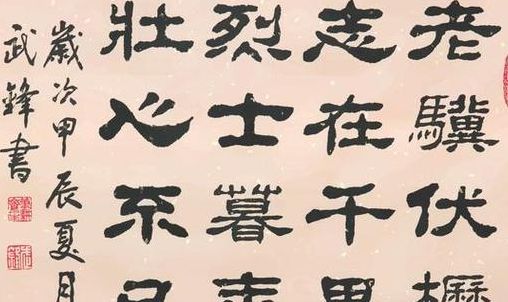 老驥伏櫪
志在千里
烈士暮年
壯心不已
歲次甲辰夏月
武鋒書